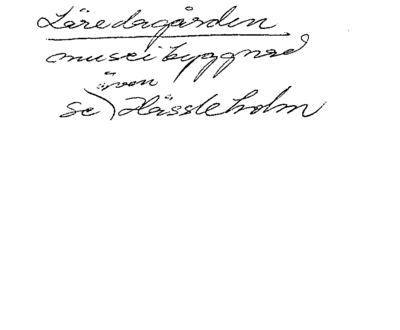 Läredagården
museibyggnad
även
se Hässleholm